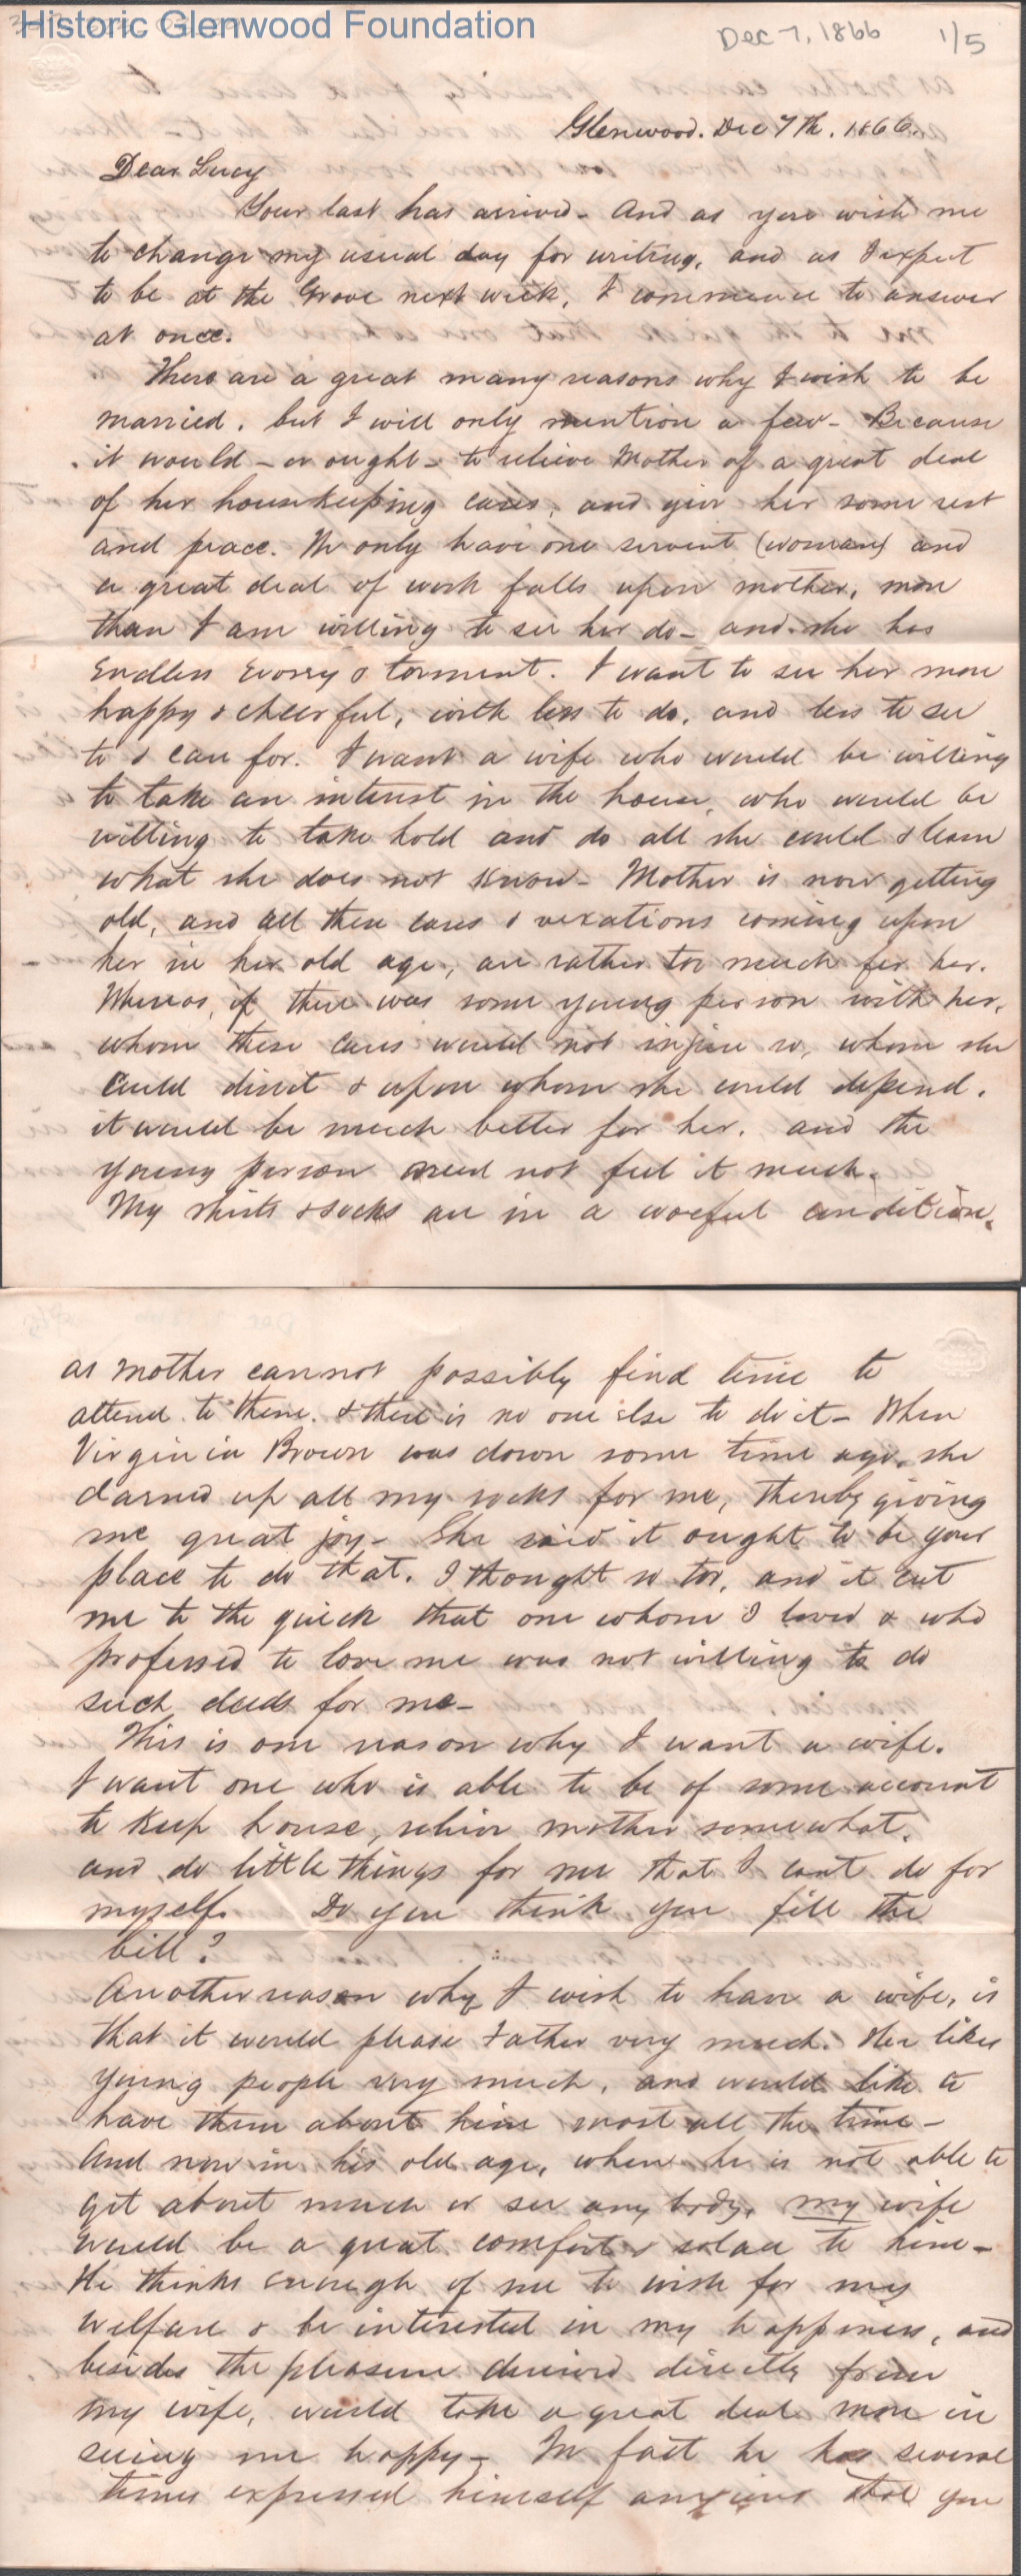 Historic Glenwood Foundation
Dec 7, 1866 1/5
Glenwood. Dec 7th. 1866.
Dear Lucy
Your last has arrived - And as you wish me
to change my usual day for writing, and as I expect
to be at the Grove next week, I commence to answer
at once.
There are a great many reasons why I wish to be
married, but I will only mention a few - Because
it would - or ought - to relieve Mother of a great deal
of her housekeeping cares, and give her some rest
and peace. We only have one servant (woman) and
a great deal of work falls upon mother, more
than I am willing to see her do - and she has
endless worry & torment. I want to see her more
happy & cheerful, with less to do, and less to see
to & care for. I want a wife who would be willing
to take an interest in the house, who would be
willing to take hold and do all she could & learn
what she does not know - Mother is now getting
old, and all these cares & vexations coming upon
her in her old age, are rather too much for her.
Whereas, if there was some young person with her,
whom these cares would not injure so, whom she
could direct & upon whom she could depend,
it would be much better for her. and the
young person need not feel it much.
My shirts & socks are in a woeful condition,
as mother cannot possibly find time to
attend to them. & there is no one else to do it - When
Virginia Brown was down some time ago, she
darned up all my socks for me, thereby giving
me great joy - She said it ought to be your
place to do that. I thought so too, and it cut
me to the quick that one whom I loved & who
professed to love me was not willing to do
such deeds for me -
This is one reason why I want a wife.
I want one who is able to be of some account
to keep house, relieve mother somewhat,
and do little things for me that I cant do for
myself. Do you think you fill the
bill?
Another reason why I wish to have a wife, is
that it would please Father very much. He likes
young people very much, and would like to
have them about him most all the time -
And now in his old age, when he is not able to
get about much or see any body, my wife
would be a great comfort & solace to him -
He thinks enough of me to wish for my
welfare & be interested in my happiness, and
besides the pleasure derived directly from
my wife, would take a great deal more in
seeing me happy - In fact he has several
times expressed himself anxious that you